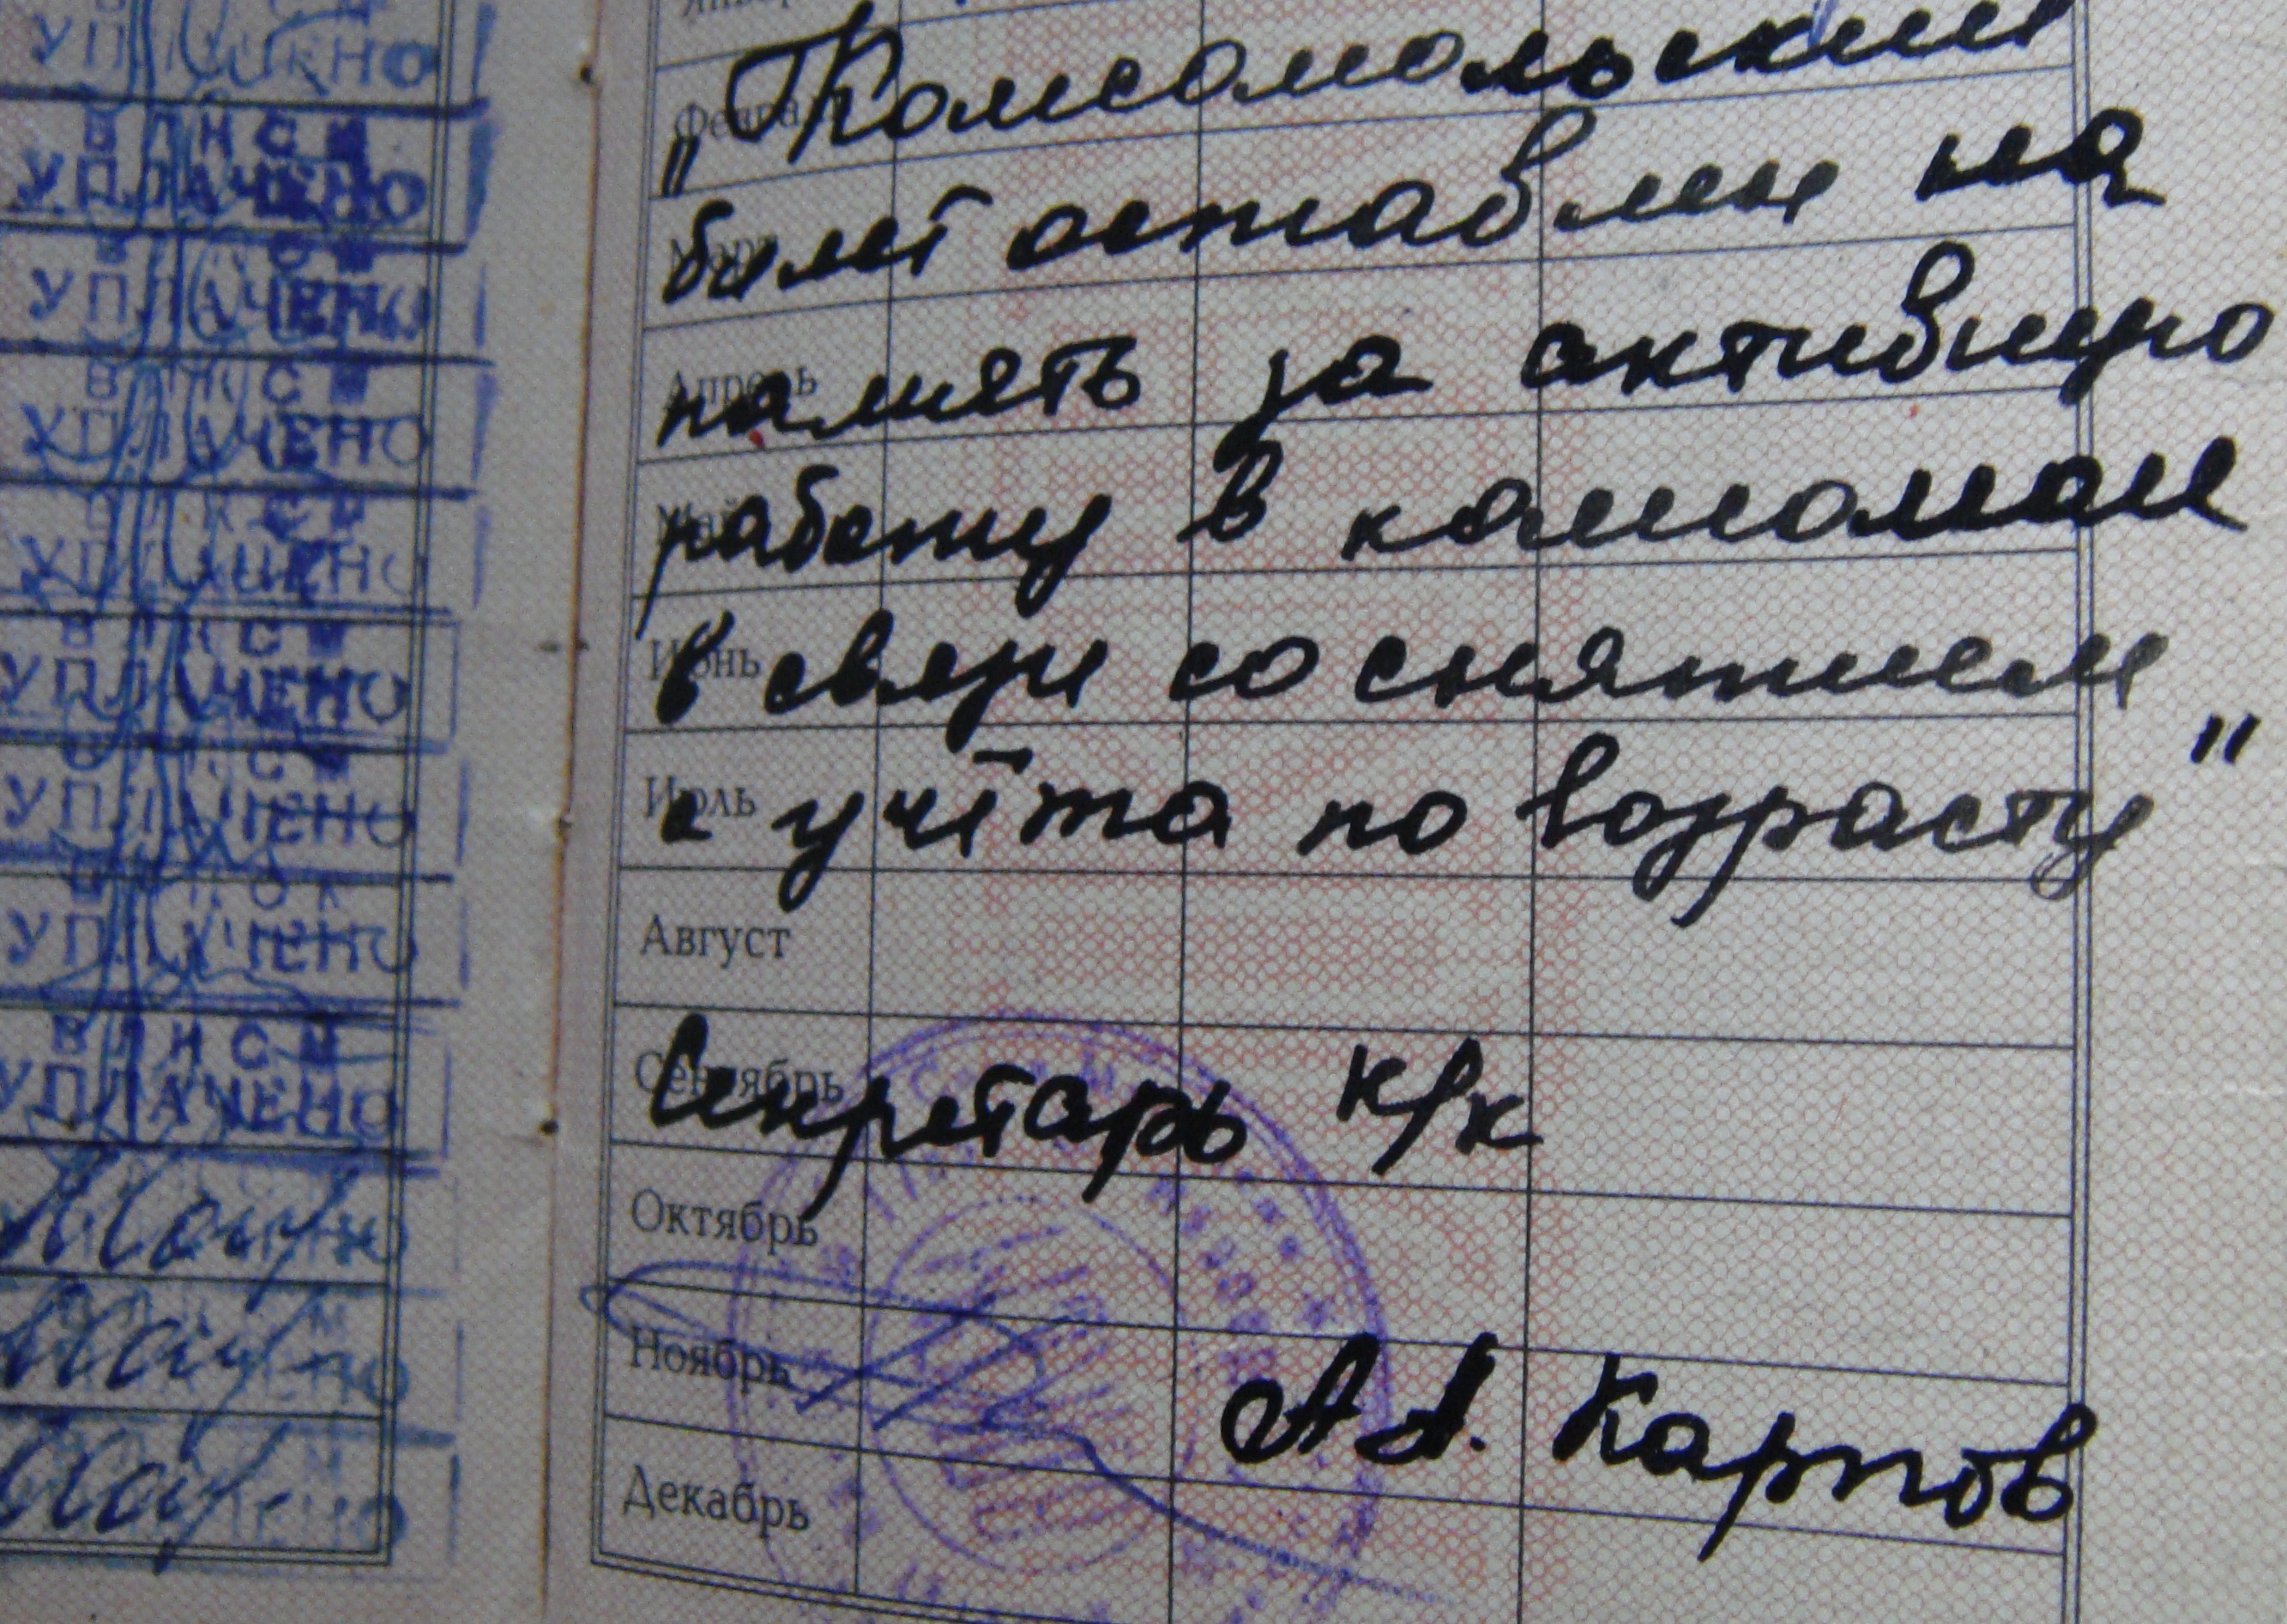 УПЛАЧЕНО
ВЛКСМ
УПЛАЧЕНО
УПЛАЧЕНО
ВЛКСМ
УПЛАЧЕНО
УПЛАЧЕНО
ВЛКСМ
УПЛАЧЕНО
УПЛАЧЕНО
УПЛАЧЕНО
ВЛКСМ
УПЛАЧЕНО
Январь
Февраль
Март
Апрель
Май
Июнь
Июль
Август
Сентябрь
Октябрь
Ноябрь
Декабрь
„Комсомольский
билет оставлен на
память за активную
работу в комсомоле
в связи со снятием
с учёта по возрасту"
Секретарь к/к
А.А. Карпов